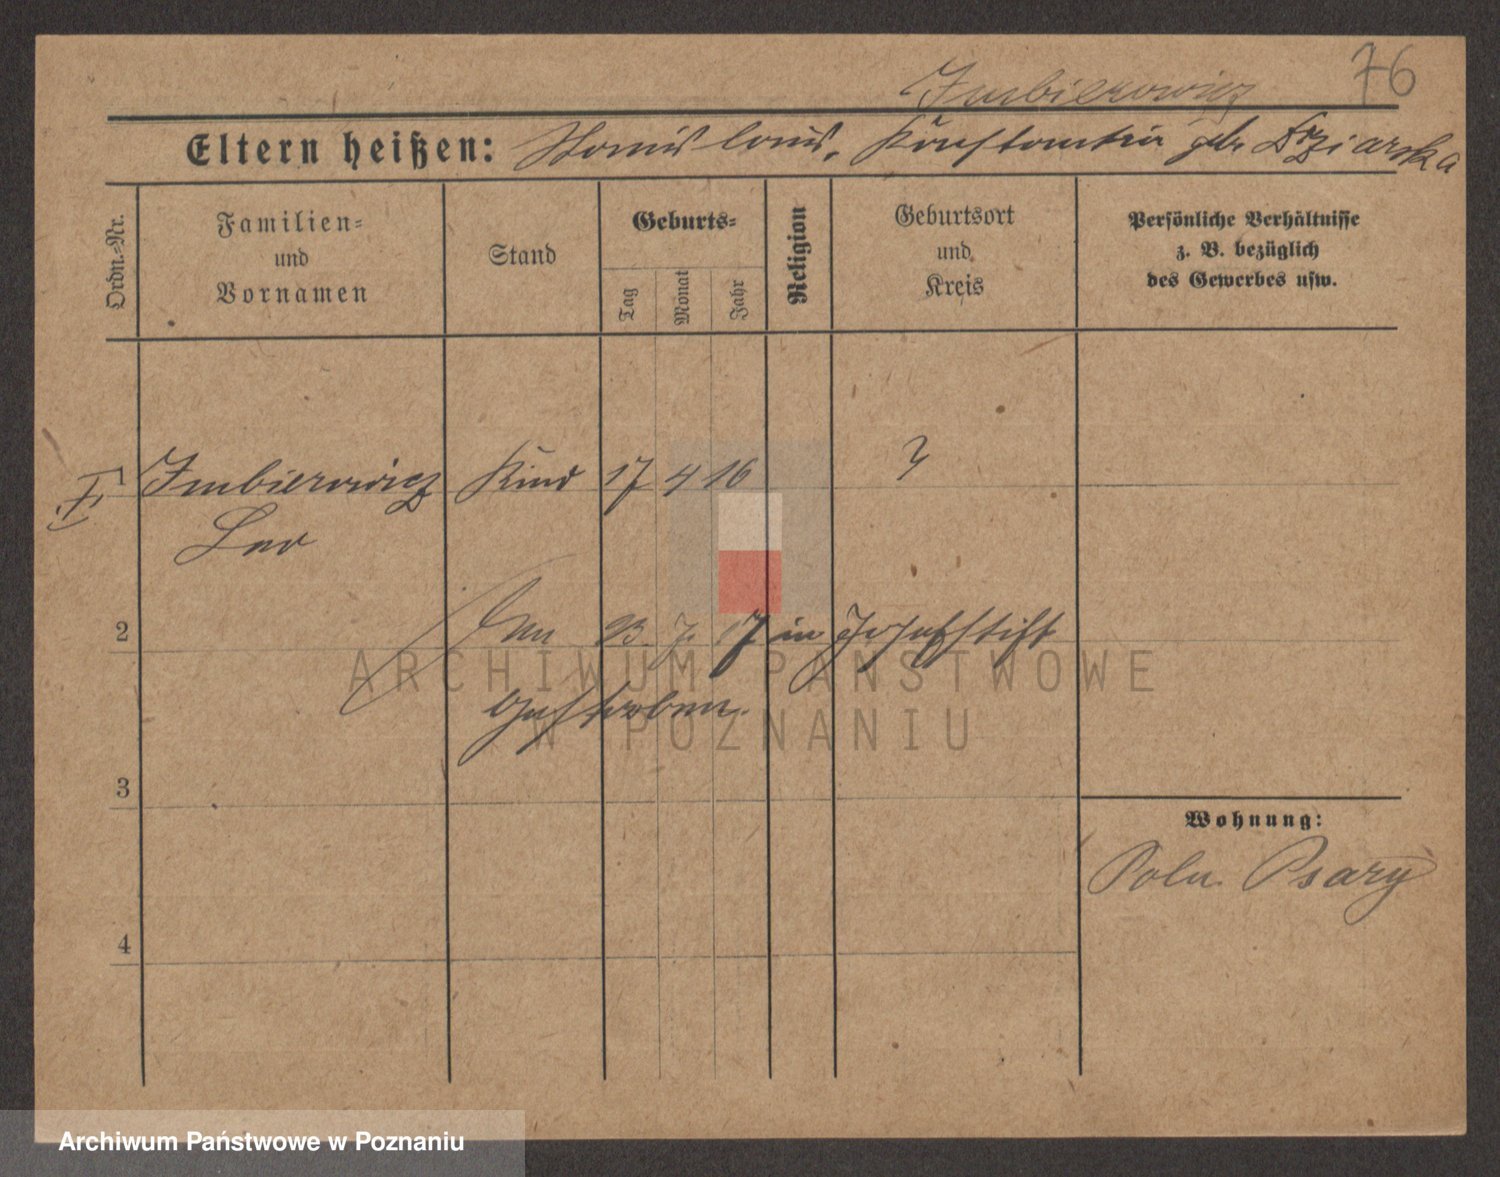 76
Imbierowicz
Eltern heißen: Stanislaus, Konstantia geb. Dziarska
Ordn.-Nr.
Familien-
und
Vornamen
Stand
Geburts-
Tag
Monat
Jahr
Religion
Geburtsort
und
Kreis
Persönliche Verhältnisse
z. B. bezüglich
des Gewerbes usw.
Imbierowicz Kind 17 4 16 ?
Leo
2 Am 23. 7. 17 in Josefstift
gestorben.
3
4
Wohnung:
Poln. Psary
ARCHIWUM PAŃSTWOWE
W POZNANIU
Archiwum Państwowe w Poznaniu